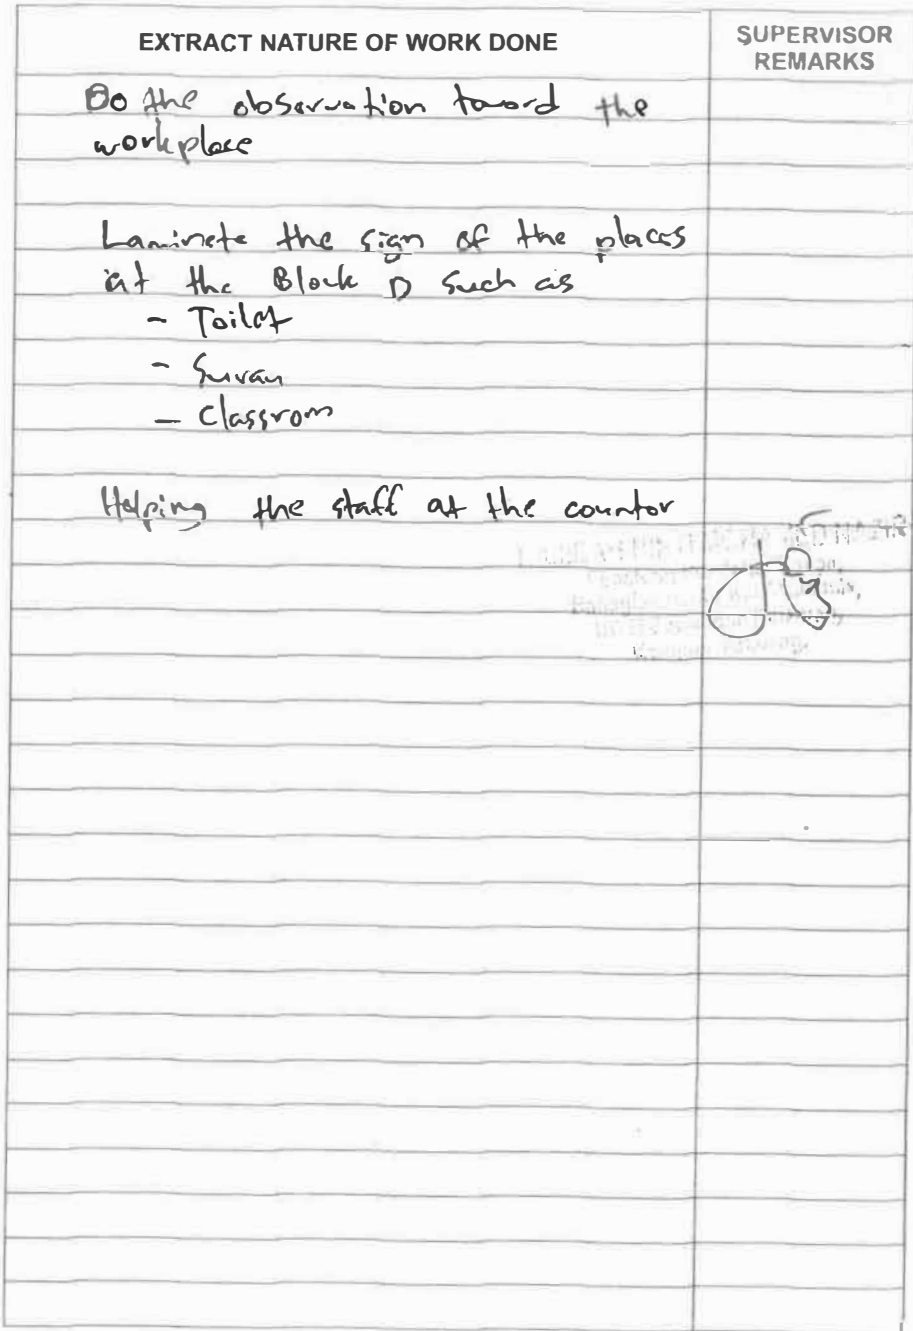 EXTRACT NATURE OF WORK DONE
SUPERVISOR
REMARKS
Do the observation toword the
workplace
Laminete the sign of the places
at the Block D such as
- Toilet
- Surau
- Classrom
Helping the staff at the counter